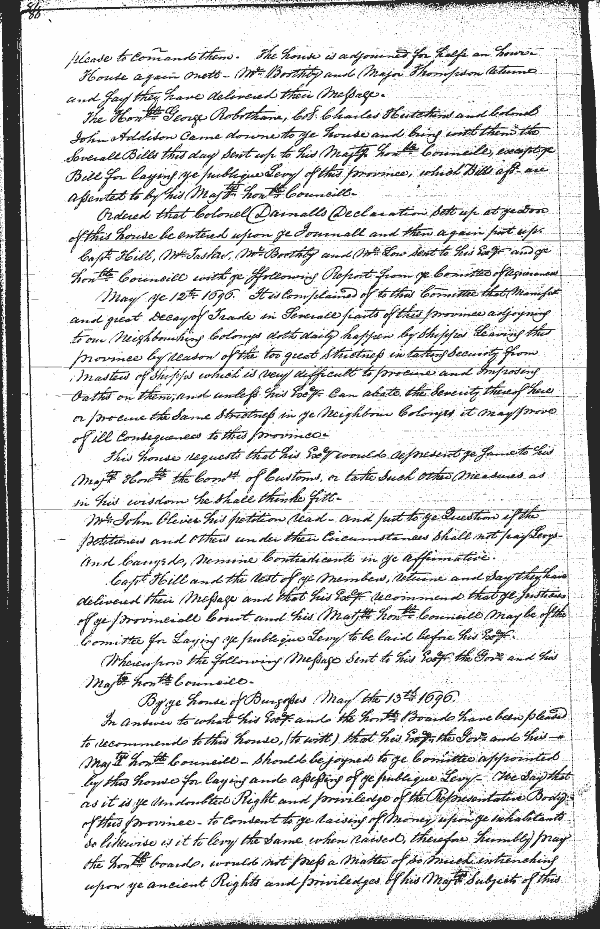 86
please to comand them. The house is adjourned for halfe an hower
House again mett – Mr. Boothby and Major Thompson returne
and say they have delivered their Message.
The Honble George Robothane, Col. Charles Hutchins and Colonel
John Addison came downe to ye house and bring with them the
Severall Bills this day sent up to his Majtys honble Councill, except ye
Bill for laying ye publique Levy of this province, which Bills afd. are
assented to by his Majtys honble Councill.
Ordered that Colonel Darnalls Declaration sett up at ye Dore
of this house be entered upon ye Journall and then again put up.
Capt. Hill, Mr. Tasker, Mr. Boothby and Mr. Low sent to his Excy. and ye
honble Councill with ye following Report from ye Comittee of Agrievances
May ye 12th 1696. It is complained of to this Comittee that Manifest
and great Decay of Trade in Severall parts of this province adjoyning
to our Neighbouring Colonys doth daily happen by Shipps Leaving this
province by reason of the too great Strictness in taking Security from
Masters of Shipps which is very difficult to procure and Imposing
Oaths on them, and unless his Excy. Can abate the Severity thereof here
or procure the Same Strictness in ye Neighbour Colonyes it may prove
of ill Consequences to this province.
This house requests that his Excy would represent ye same to his
Majtys Honble the Comrs. of Customs, or take such other Measures as
in his wisdom he shall thinke fitt.
Mr. John Oliver his petition read – and put to ye Question if the
petitioner and others under their Circumstances shall not pay Levys
and Carryed, Nemine Contradicente in ye affirmative.
Capt. Hill and the rest of ye Members, returne and Say they have
delivered their Message and that his Excy. recommend that ye Justices
of ye provinciall Court and his Majtys honble Councill may be of the
Comittee for Laying ye publique Levy to be laid before his Excy.
Whereupon the following Message Sent to his Excy. the Govr. and his
Majtys honble Councill.
By ye house of Burgesses May the 13th 1696.
In answer to what his Excy. and the honble Board have been pleased
to recommend to this house, (to witt) that his Excy. the Govr. and his
Majtys honble Councill – should be joyned to ye Comittee appointed
by this house for laying and assessing of ye publique Levy – We Say that
as it is ye undoubted Right and priviledge of the Representative Body
of this province – to consent to ye raising of Money upon ye inhabitants
so likewise is it to levy the Same when raised, therefore humbly pray
the honble board, would not press a Matter of so much intrenching
upon ye ancient Rights and priviledges of his Majtys Subjects of this